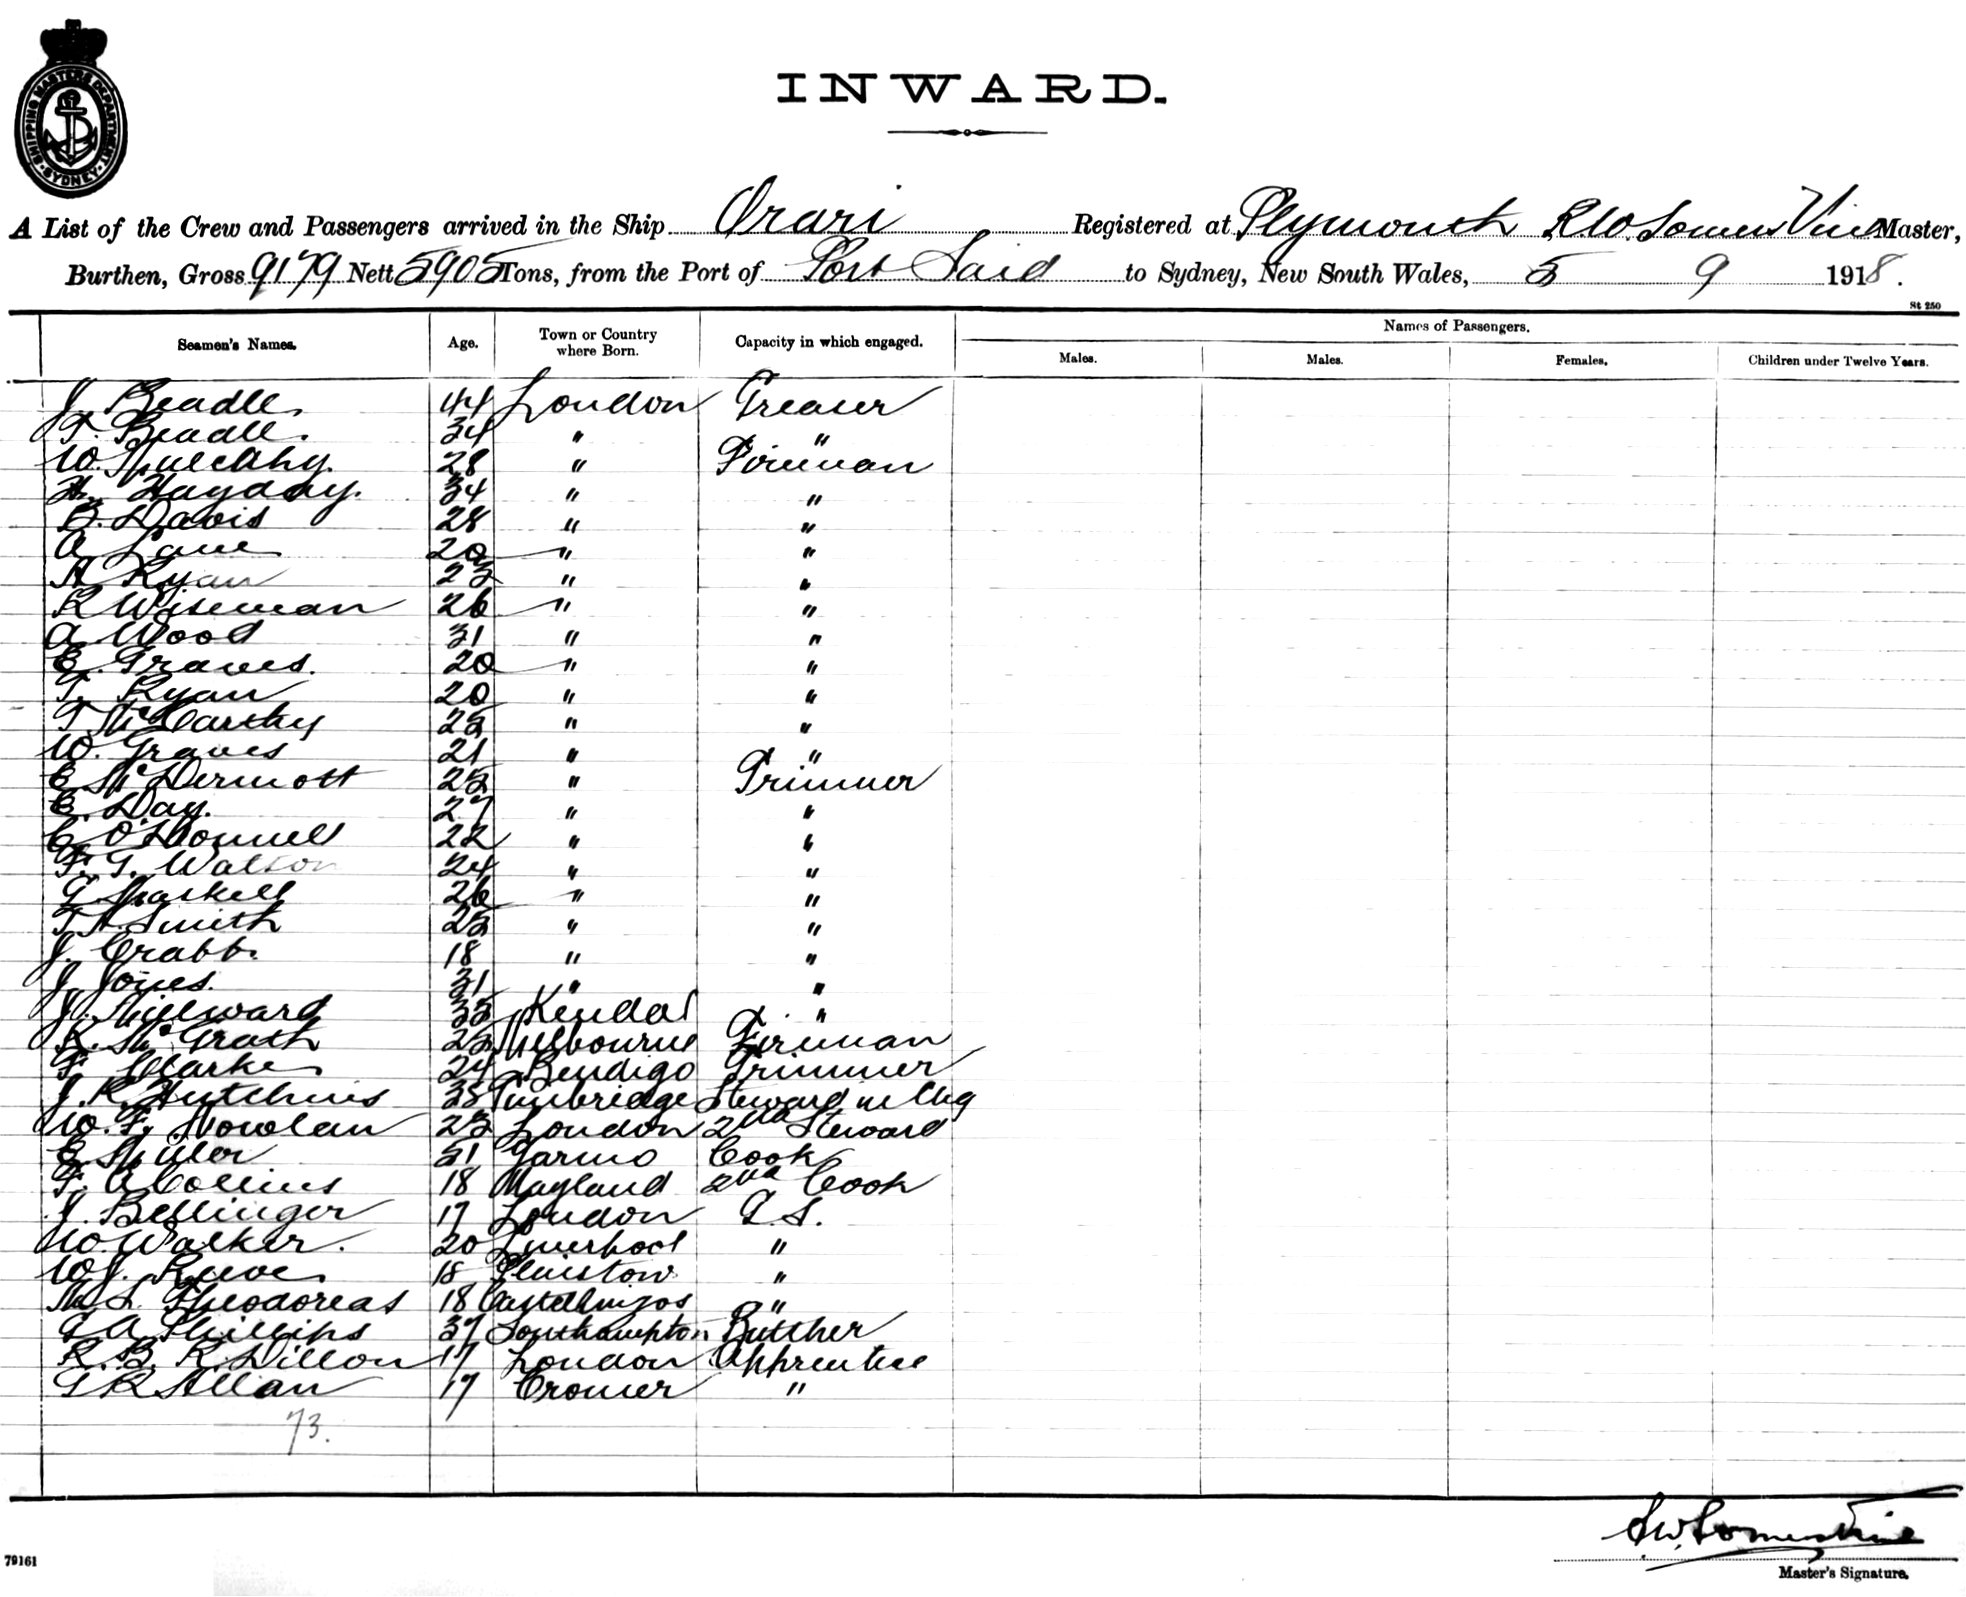 SHIPPING MASTERS DEPARTMENT SYDNEY
INWARD.
A List of the Crew and Passengers arrived in the Ship Orari Registered at Plymouth Master,
Burthen, Gross 9179 Nett 5905 Tons, from the Port of Port Said to Sydney, New South Wales, 5 9 1918.
St 250
Seamen's Names. Age. Town or Country where Born. Capacity in which engaged. Names of Passengers.
Males. Males. Females. Children under Twelve Years.
J Beadle. 44 London Greaser
T. Beadle. 34 " "
W. Mulcahy. 28 " Fireman
H. Hayday. 34 " "
B. Davis 28 " "
A Lane 20 " "
A Ryan 23 " "
R Wiseman 26 " "
A Wood 31 " "
E. Graves. 20 " "
T. Ryan 20 " "
T McCarthy 25 " "
W. Graves 21 " "
E McDermott 25 " Trimmer
E. Day. 27 " "
C O'Donnell 22 " "
F. G. Watson 24 " "
G Maskell 26 " "
T A Smith 25 " "
J. Crabb. 18 " "
J Jones. 31 " "
J. Millward 35 Kendal "
R. McGrath 25 Melbourne Fireman
F. Clarke 24 Bendigo Trimmer
J. R. Hutchins 35 Tunbridge Steward in Chg
W. F. Nowlan 23 London 2nd Steward
E Miller 51 Cook
F. A Collins 18 Mayland 2nd Cook
J. Bellinger 17 London G. S.
W. Walker. 20 Liverpool "
W J. Reeve 18 Plaistow "
M. L. Theodoreas 18 "
G A Phillips 37 Southampton Butcher
R. B. R. Dillon 17 London Apprentice
G R Allan 17 Cromer "
73.
79161
Master's Signature.